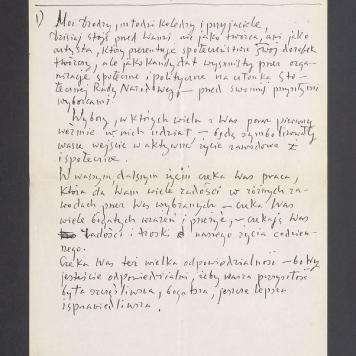 1) Moi Drodzy, młodzi koledzy i przyjaciele,
dzisiaj stoję przed Wami nie jako twórca, ani jako
artysta, który prezentuje społeczeństwu swój dorobek
twórczy, ale jako kandydat wysunięty przez orga-
nizacje społeczne i polityczne na członka Sto-
łecznej Rady Narodowej – przed swoimi przyszłymi
wyborcami.
Wybory, w których wielu z Was po raz pierwszy
weźmie w nich udział – będą symbolizowały
wasze wejście w aktywne życie zawodowe
i społeczne.
W waszym dalszym życiu czeka Was praca,
która da Wam wiele radości w różnych za-
wodach przez Was wybranych – czeka Was
wiele bogatych wrażeń i przeżyć, – czekają Was
radości i troski naszego życia codzien-
nego.
Czeka Was też wielka odpowiedzialność – bo Wy
jesteście odpowiedzialni, żeby wasza przyszłość
była szczęśliwsza, bogatsza, jeszcze lepsza
i sprawiedliwsza.